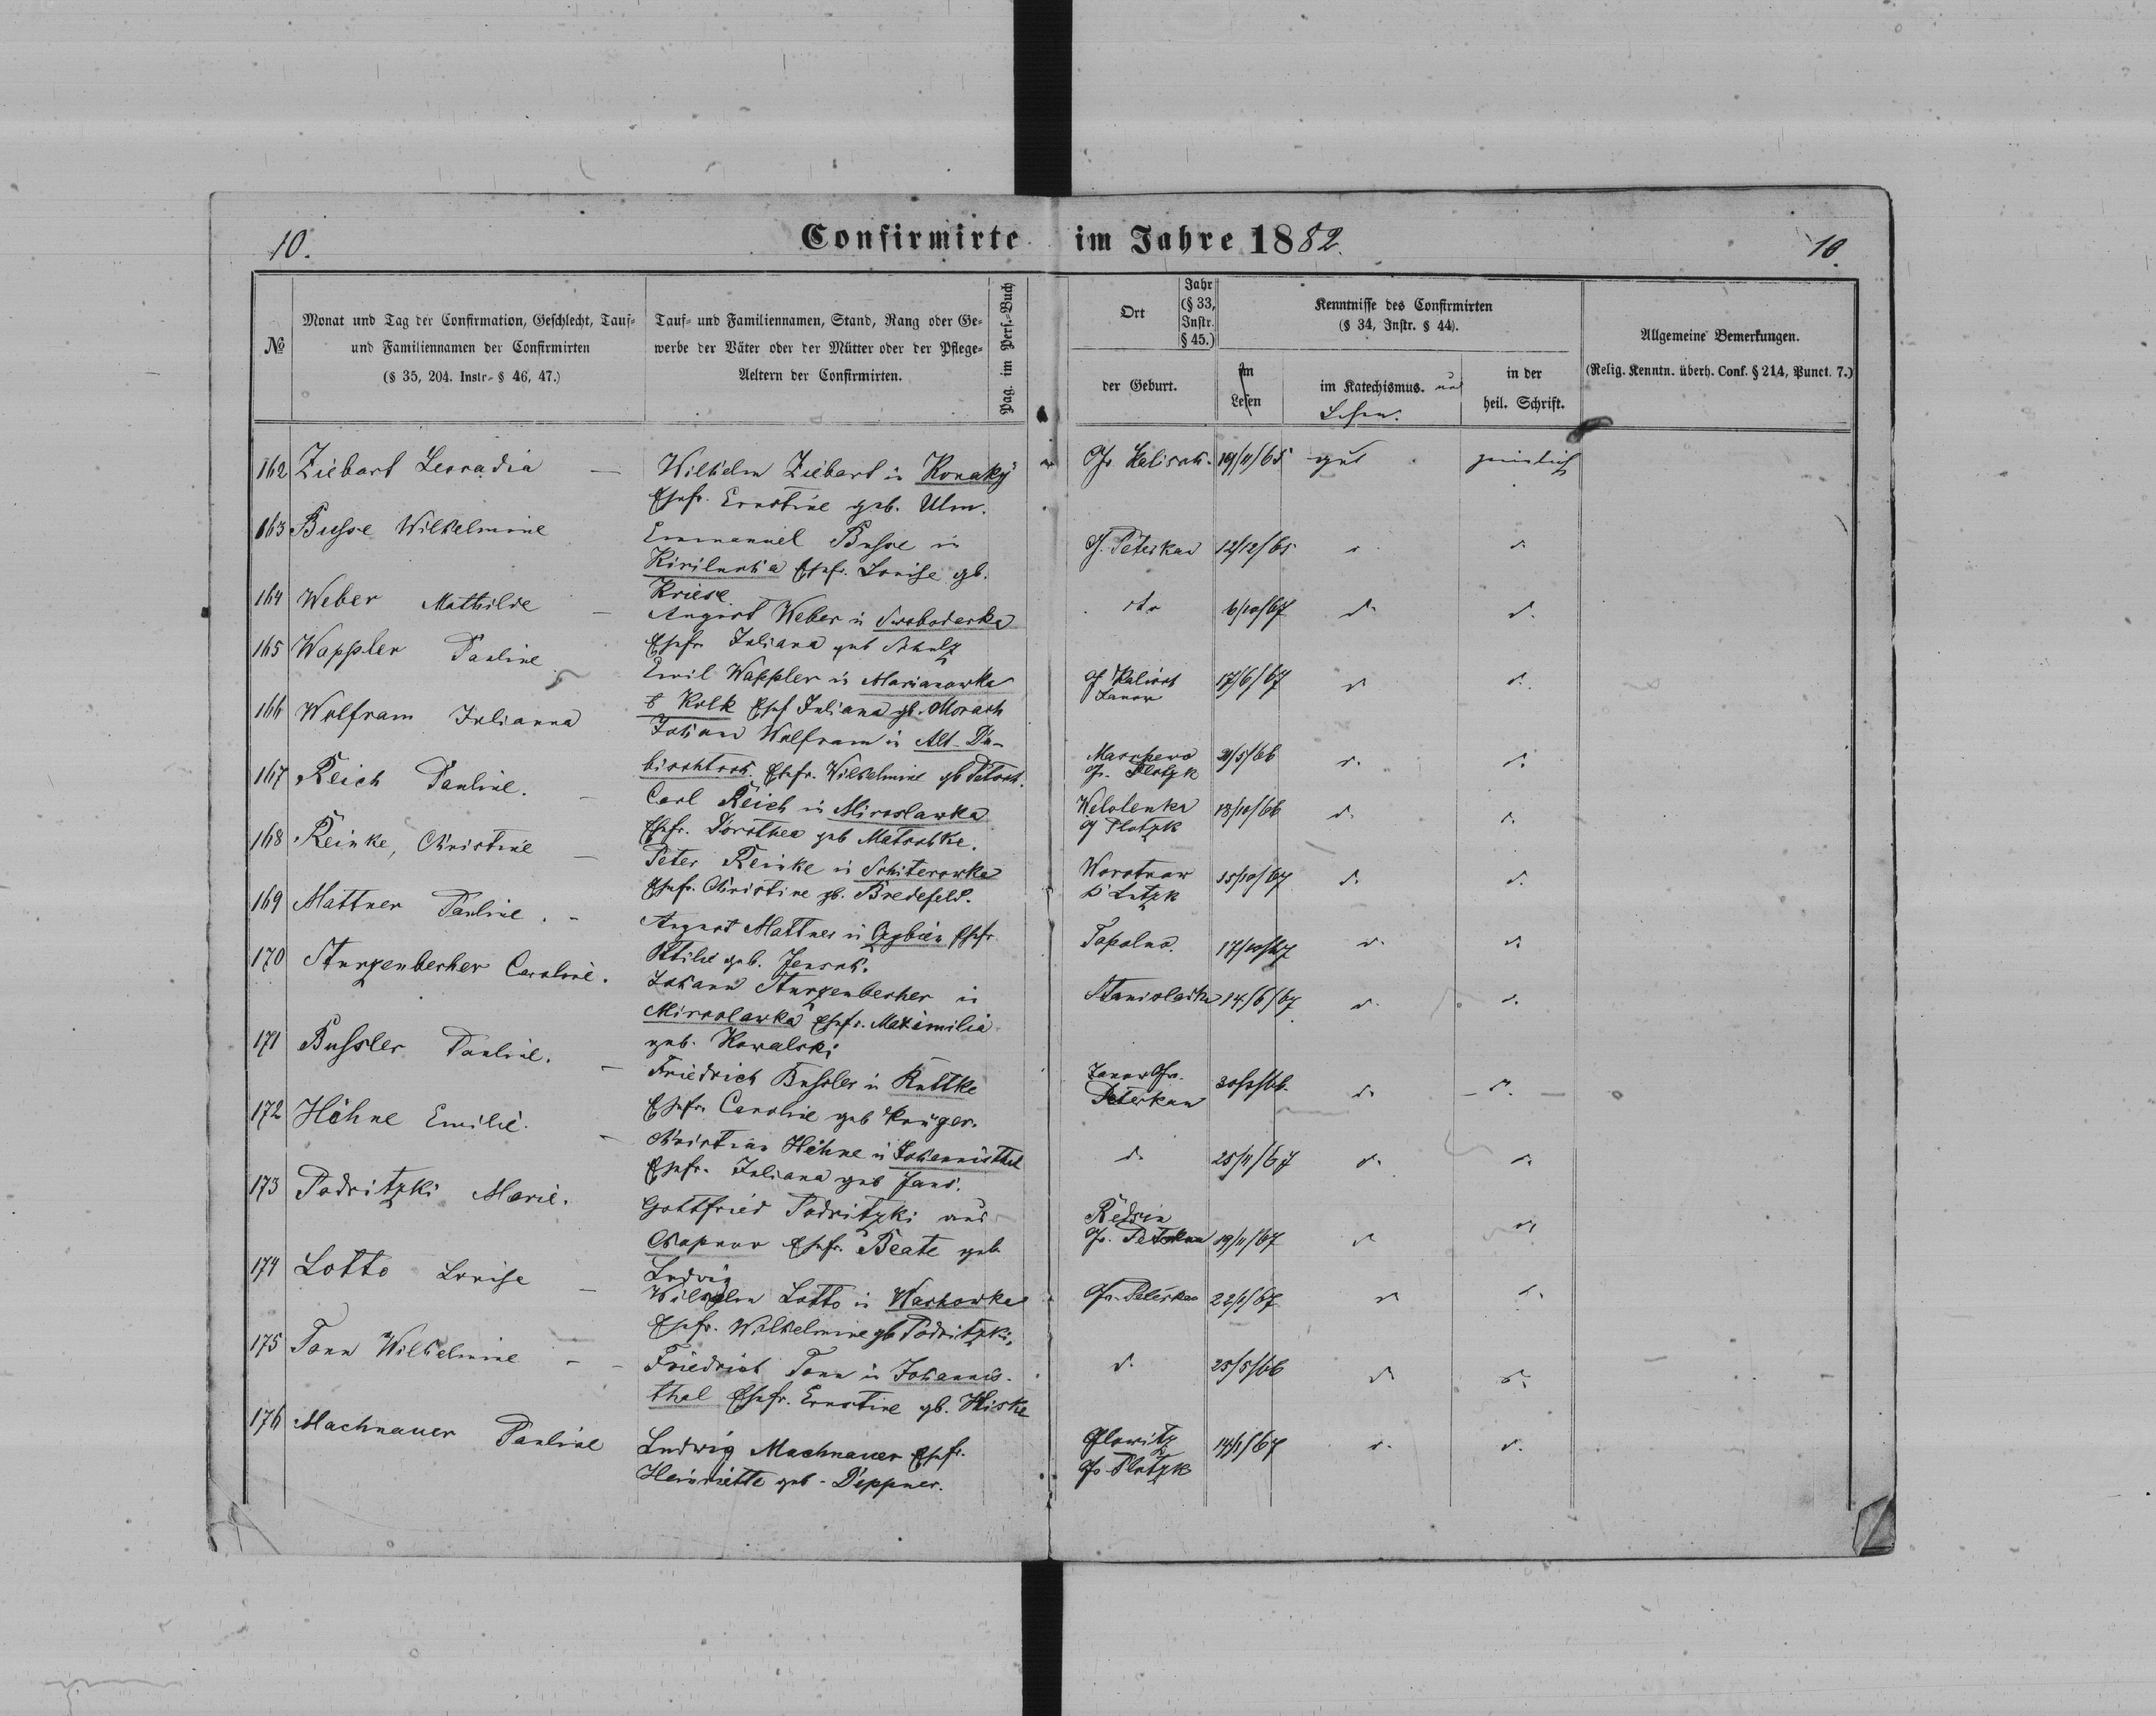 10.
Confirmirte im Jahre 1882.
10.
№
Monat und Tag der Confirmation, Geschlecht, Tauf-
und Familiennamen der Confirmirten
(§ 35, 204. Instr. § 46, 47.)
Tauf- und Familiennamen, Stand, Rang oder Ge-
werbe der Väter oder der Mütter oder der Pflege-
Aeltern der Confirmirten.
Pag. im Pers.-Buch
Ort
Jahr
(§ 33,
Instr.
§ 45.)
der Geburt.
Kenntnisse des Confirmirten
(§ 34, Instr. § 44).
Im
Lesen
im Katechismus. und
Lesen.
in der
heil. Schrift.
Allgemeine Bemerkungen.
(Relig. Kenntn. überh. Conf. § 214, Punct. 7.)
162 Ziebart Leocadia —
Wilhelm Ziebart in Konaky
Ehefr. Ernstine geb. Ulm.
Gr Kalisch. 19/11/65 gut ziemlich
163 Busse Wilhelmine
Emmanuel Busse in
Kirilucha Ehefr. Louise gb.
Kriese.
G. Peterkau 12/12/65 d.
164 Weber Mathilde —
August Weber in Swobodarka
Ehefr. Juliana geb Schulz
dto 6/10/67 d. d.
165 Wappler Pauline
Emil Wappler in Marianowka
b Rolk Ehef Juliana gb. Morach
G Kalisch
Janow 17/6/67 d d.
166 Wolfram Julianna
Johann Wolfram in Alt-Du-
bischtsch. Ehefr. Wilhelmine gb Petsch.
Maschewo
Gr. Plotzk 21/5/66 d. d.
167 Reich Pauline. —
Carl Reich in Miroslawka
Ehefr. Dorothea geb Matschke.
Welolenka
G Plotzk 18/10/66 d. d.
168 Reinke, Christine —
Peter Reinke in Schiterowka
Ehefr. Christine gb. Bredefeld.
Worotnow
b Lutzk 15/10/67 d. d.
169 Mattner Pauline. -
August Mattner in Ehefr.
Ottilie geb. Jensch.
Tapolno. 17/10/67 d. d.
170 Sturzenbecher Caroline.
Johann Sturzenbecher in
Miroslawka Ehefr. Maximilia
geb. Kowalski
14/6/67 d. d.
171 Bussler Pauline. —
Friedrich Bussler in Ruttke
Ehefr. Caroline geb Krüger.
Janow Gr.
Peterkau d. d.
172 Höhne Emilie. -
Christian Höhne in Johannisthal
Ehefr. Juliana geb Jans.
d. 25/11/67 d. d.
173 Podritzki Marie.
Gottfried Podritzki aus
Ehefr. Beate geb
Ludwig
Gr. Peterkau 19/11/67 d d
174 Lotto Louise —
Wilhelm Lotto in Warhowka
Ehefr. Wilhelmine gb Podritzki,
Gr. Peterkau 22/1/67 d d.
175 Tonn Wilhelmine - -
Friedrich Tonn in Johannis-
thal Ehefr. Ernstine gb. Hiske
d. 25/5/66 d d.
176 Machnauer Pauline
Ludwig Machnauer Ehefr.
Heinriette geb. Deppner.
Glowitz
Gr Plotzk 14/1/67 d. d.